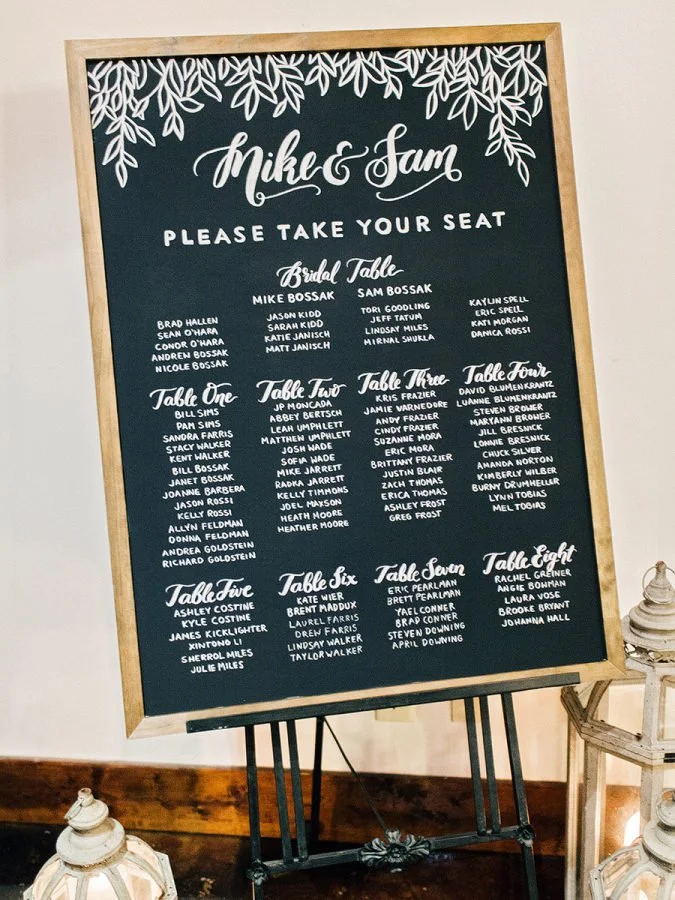 Mike & Sam
PLEASE TAKE YOUR SEAT
Bridal Table
MIKE BOSSAK SAM BOSSAK
BRAD HALLEN
SEAN O'HARA
CONOR O'HARA
ANDREN BOSSAK
NICOLE BOSSAK
JASON KIDD
SARAH KIDD
KATIE JANISCH
MATT JANISCH
TORI GOODLING
JEFF TATUM
LINDSAY MILES
MIRNAL SHUKLA
KAYLIN SPELL
ERIC SPELL
KATI MORGAN
DANICA ROSSI
Table One
BILL SIMS
PAM SIMS
SANDRA FARRIS
STACY WALKER
KENT WALKER
BILL BOSSAK
JANET BOSSAK
JOANNE BARBERA
JASON ROSSI
KELLY ROSSI
ALLYN FELDMAN
DONNA FELDMAN
ANDREA GOLDSTEIN
RICHARD GOLDSTEIN
Table Two
JP MONCADA
ABBEY BERTSCH
LEAH UMPHLETT
MATTHEW UMPHLETT
JOSH WADE
SOFIA WADE
MIKE JARRETT
RADKA JARRETT
KELLY TIMMONS
JOEL MAXSON
HEATH MOORE
HEATHER MOORE
Table Three
KRIS FRAZIER
JAMIE VARNEDORE
ANDY FRAZIER
CINDY FRAZIER
SUZANNE MORA
ERIC MORA
BRITTANY FRAZIER
JUSTIN BLAIR
ZACH THOMAS
ERICA THOMAS
ASHLEY FROST
GREG FROST
Table Four
DAVID BLUMENKRANTZ
LUANNE BLUMENKRANTZ
STEVEN BROWER
MARYANN BROWER
JILL BRESNICK
LONNIE BRESNICK
CHUCK SILVER
AMANDA NORTON
KIMBERLY WILBER
BUDDY DRUMHELLER
LYNN TOBIAS
MEL TOBIAS
Table Five
ASHLEY COSTINE
KYLE COSTINE
JAMES KICKLIGHTER
XINTONG LI
SHERROL MILES
JULIE MILES
Table Six
KATE WIER
BRENT MADDUX
LAUREL FARRIS
DREW FARRIS
LINDSAY WALKER
TAYLOR WALKER
Table Seven
ERIC PEARLMAN
BRETT PEARLMAN
YAEL CONNER
BRAD CONNER
STEVEN DOWNING
APRIL DOWNING
Table Eight
RACHEL GREINER
ANGIE BOWMAN
LAURA VOSE
BROOKE BRYANT
JOHANNA HALL